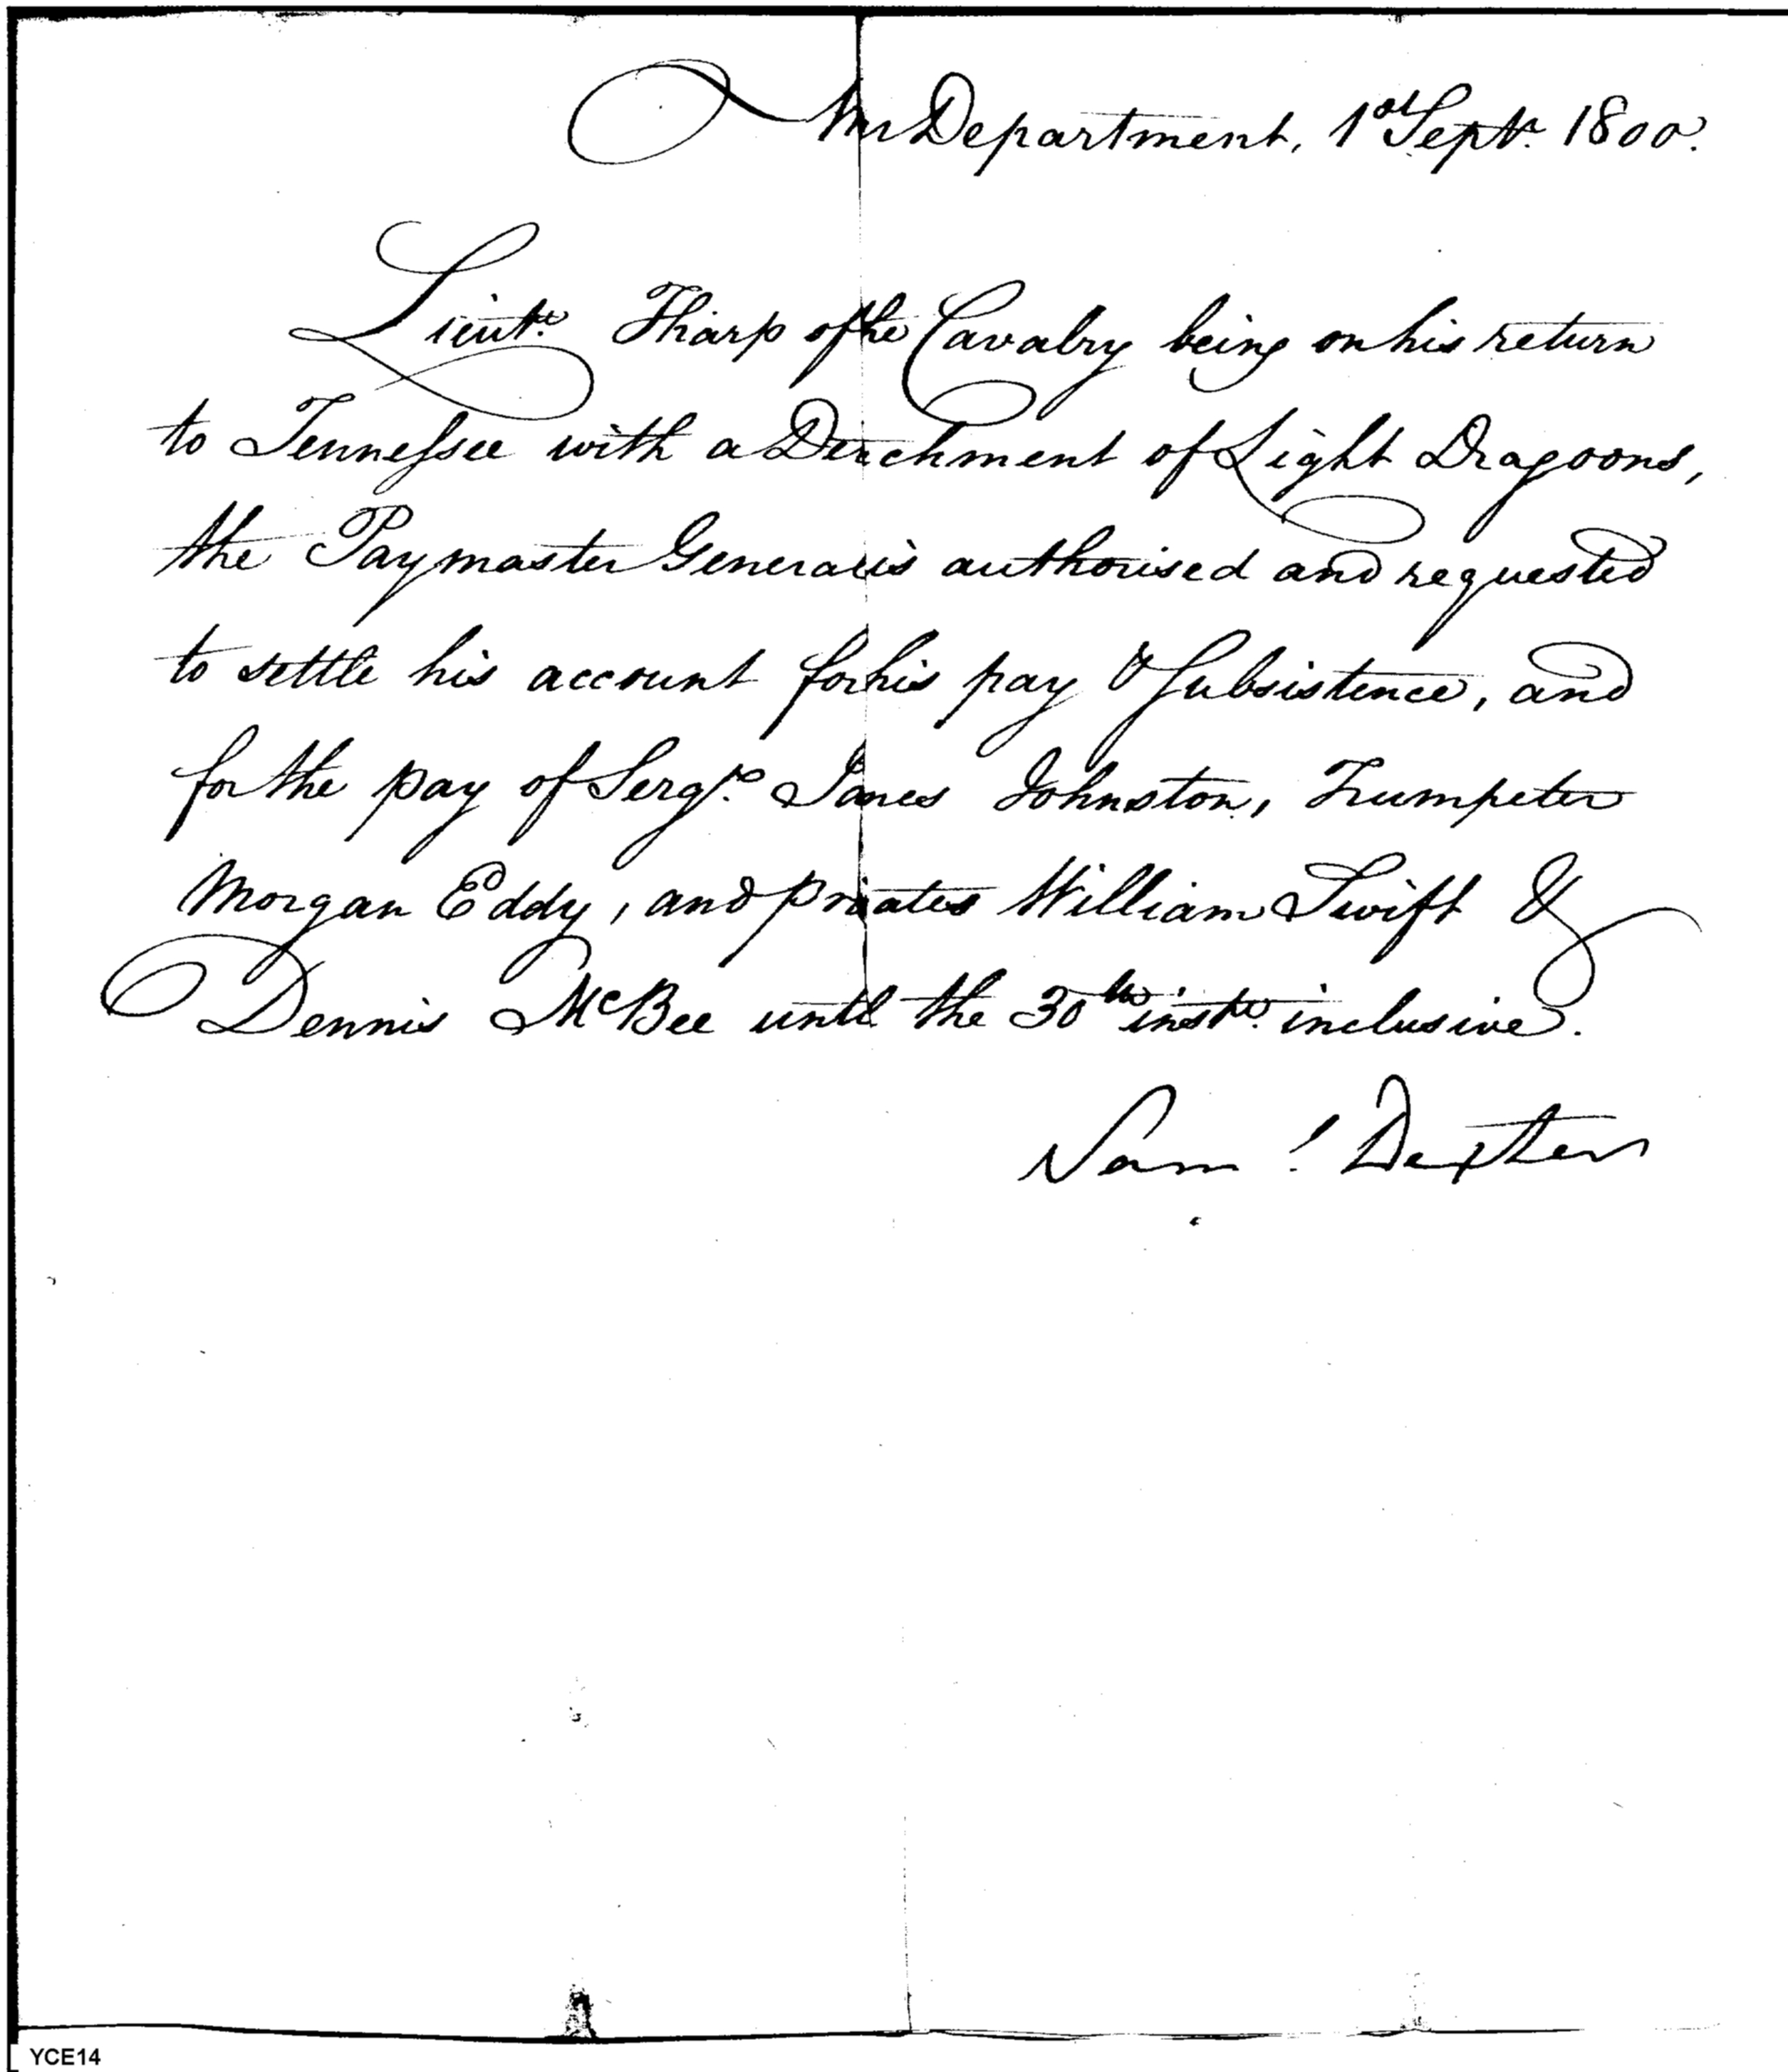 War Department, 1st Sept. 1800.
Lieut. Tharp of the Cavalry being on his return
to Tennessee with a Detachment of Light Dragoons,
the Paymaster General is authorised and requested
to settle his account for his pay & Subsistence, and
for the pay of Sergt. James Johnston, Trumpeter
Morgan Eddy, and privates William Swift &
Dennis McBee until the 30th inst. inclusive.
Saml. Dexter
YCE14